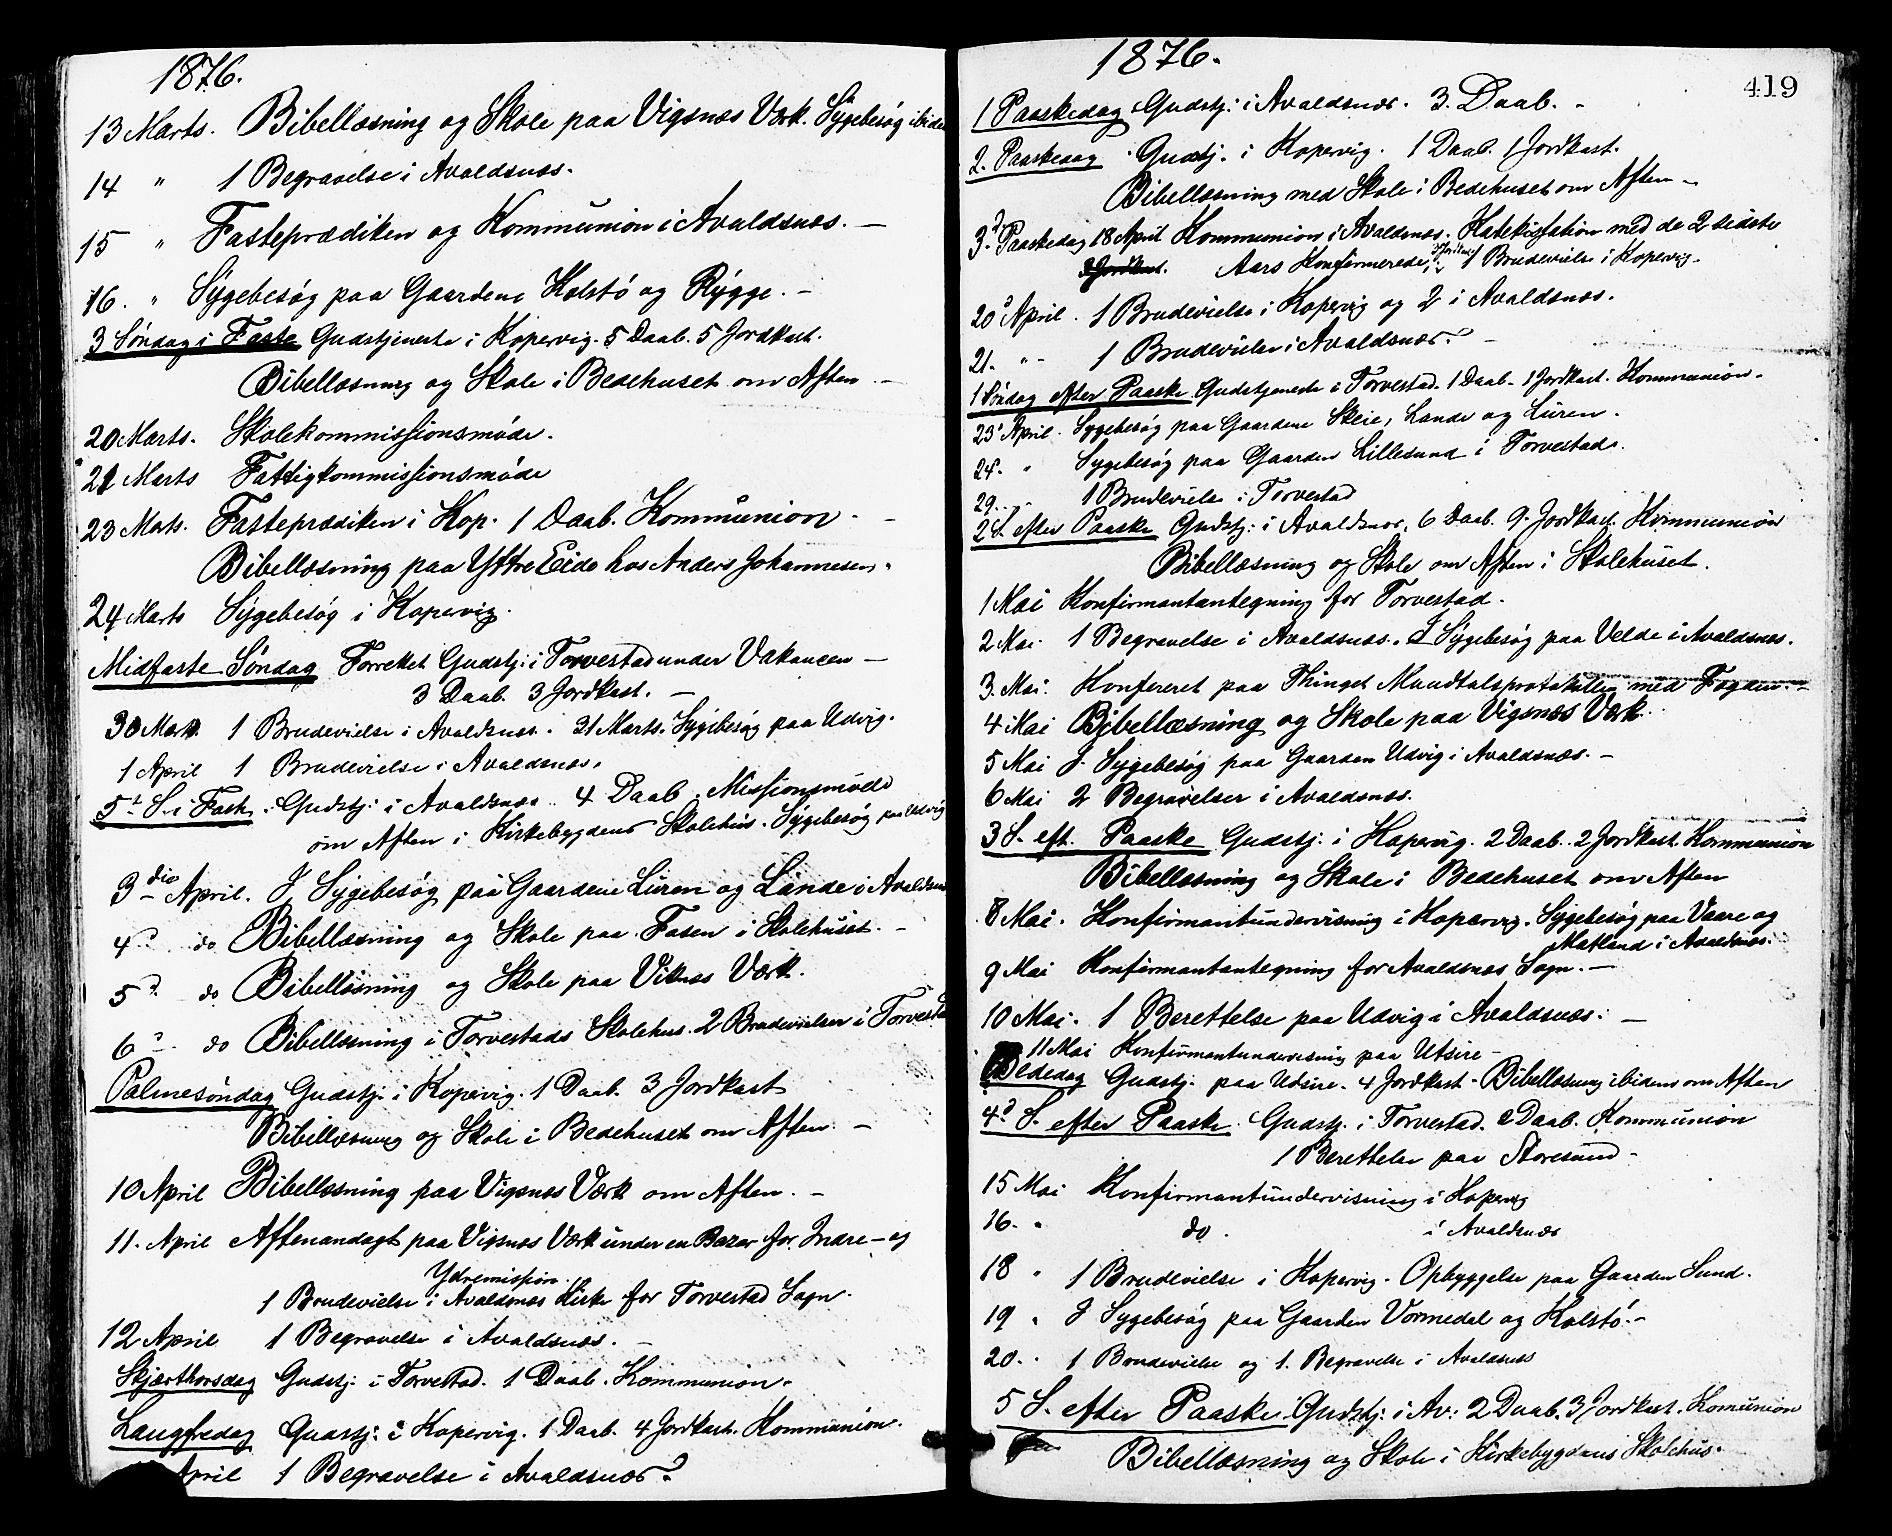 1876.
13 Marts. Bibellæsning og Skole paa Vigsnæs Værk. Sygebesøg ibide
14 " 1 Begravelse i Avaldsnæs.
15 " Fasteprædiken og Kommunion i Avaldsnæs. —
16. " Sygebesøg paa Gaardene Holstö og Rygge. —
3 Søndag i Faste Gudstjeneste i Kopervig. 5 Daab. 5 Jordkast.
Bibellæsning og Skole i Bedehuset om Aften. —
20 Marts. Skolekommissionsmøde.
21 Marts Fattigkommissionsmøde
23 Mats. Fasteprædiken i Kop. 1 Daab. Kommunion. —
Bibellæsning paa Yttre Eide hos Anders Johannesen.
24 Marts Sygebesøg i Kopervig.
Midfaste Søndag Forrettet Gudstj: i Torvestad under Vakancen —
3 Daab. 3 Jordkast. —
30 Mar 1 Brudevielse i Avaldsnæs. 31 Marts. Sygebesøg paa Udvig.
1 April 1 Brudevielse i Avaldsnæs.
5t S. i Fast. Gudstj: i Avaldsnæs. 4 Daab. Missionsmøde
om Aften i Kirkebygdens Skolehus. Sygebesøg paa Udvig
3die April. 2 Sygebesøg paa Gaardene Liren og Lande i Avaldsnæ
4d do Bibellæsning og Skole paa Fosen i Skolehuset. —
5d. do Bibellæsning og Skole paa Viknæs Værk.
6d. do Bibellæsning i Torvestads Skolehus. 2 Brudevielser i Torvesta
Palmesøndag Gudstj: i Kopervig. 1 Daab. 3 Jordkast
Bibellæsning og Skole i Bedehuset om Aften. —
10 April Bibellæsning paa Vigsnæs Værk om Aften. —
11. April Aftenandagt paa Vigsnæs Værk under en Bazar for Indre- og
Ydremission.
1 Brudevielse i Avaldsnæs Kirke for Torvestad Sogn.
12 April 1 Begravelse i Avaldsnæs. —
Skjærthorsdag Gudstj: i Torvestad. 1 Daab. Kommunion.
Langfredag Gudstj: i Kopervig. 1 Daab. 4 Jordkast. Kommunion.
April 1 Begravelse i Avaldsnæs.
1876.
419
1 Paaskedag Gudstj: i Avaldsnæs. 3. Daab. —
2. Paaskedag Gudstj. i Kopervig. 1 Daab. 1 Jordkast.
Bibellæsning med Skole i Bedehuset om Aften —
3d. Paaskedag 18 April Kommunion i Avaldsnæs. Katekisation med de 2 sidste
Aars Konfirmerede. 1 Brudevielse i Kopervig.
20d April. 1 Brudevielse i Kopervig og 2 i Avaldsnæs.
21. " - 1 Brudevielse i Avaldsnæs. —
1 Søndag efter Paaske Gudstjeneste i Torvestad. 1 Daab. 1 Jordkast. Kommunion.
23d April. Sygebesøg paa Gaardene Skeie, Lande og Liren.
24. " Sygebesøg paa Gaarden Lillesund i Torvestad.
29. " 1 Brudevielse i Torvestad
2 S. efter Paaske Gudstj: i Avaldsnæs. 6 Daab. 9. Jordkast. Kommunion
Bibellæsning og Skole om Aften i Skolehuset.
1 Mai Konfirmantantegning for Torvestad.
2 Mai. 1 Begravelse i Avaldsnæs. 1 Sygebesøg paa Velde i Avaldsnæs.
3. Mai. Konfereret paa Thinget Mandtalsprotokollen med Fogden. —
4 Mai Bibellæsning og Skole paa Vigsnæs Værk.
5 Mai 1 Sygebesøg paa Gaarden Udvig i Avaldsnæs. —
6 Mai 2 Begravelser i Avaldsnæs.
3 S. eft. Paaske Gudstj: i Kopervig. 2 Daab. 2 Jordkast. Kommunion
Bibellæsning og Skole i Bedehuset om Aften
8 Mai. Konfirmantundervisning i Kopervig. Sygebesøg paa Vaare og
Matland i Avaldsnæs.
9 Mai Konfirmantantegning for Avaldsnæs Sogn. —
10 Mai. 1 Berettelse paa Udvig i Avaldsnæs. —
11 Mai Konfirmantundervisning paa Utsire —
Bededag Gudstj. paa Udsire. 4 Jordkast. Bibellæsning ibidem om Aften
4d S. efter Paaske. Gudstj: i Torvestad. 2 Daab. Kommunion
1 Berettelse paa Storesund —
15 Mai Konfirmantundervisning i Kopervig
16. " do. i Avaldsnæs
18 " 1 Brudevielse i Kopervig. Opbyggelse paa Gaarden Sund.
19 " 2 Sygebesøg paa Gaarden Vormedal og Holstö. —
20. " 1 Brudevielse og 1. Begravelse i Avaldsnæs
5 S. efter Paaske Gudstj: i Av: 2 Daab. 3 Jordkast. Komunion
Bibellæsning og Skole i Kirkebygdens Skolehus.